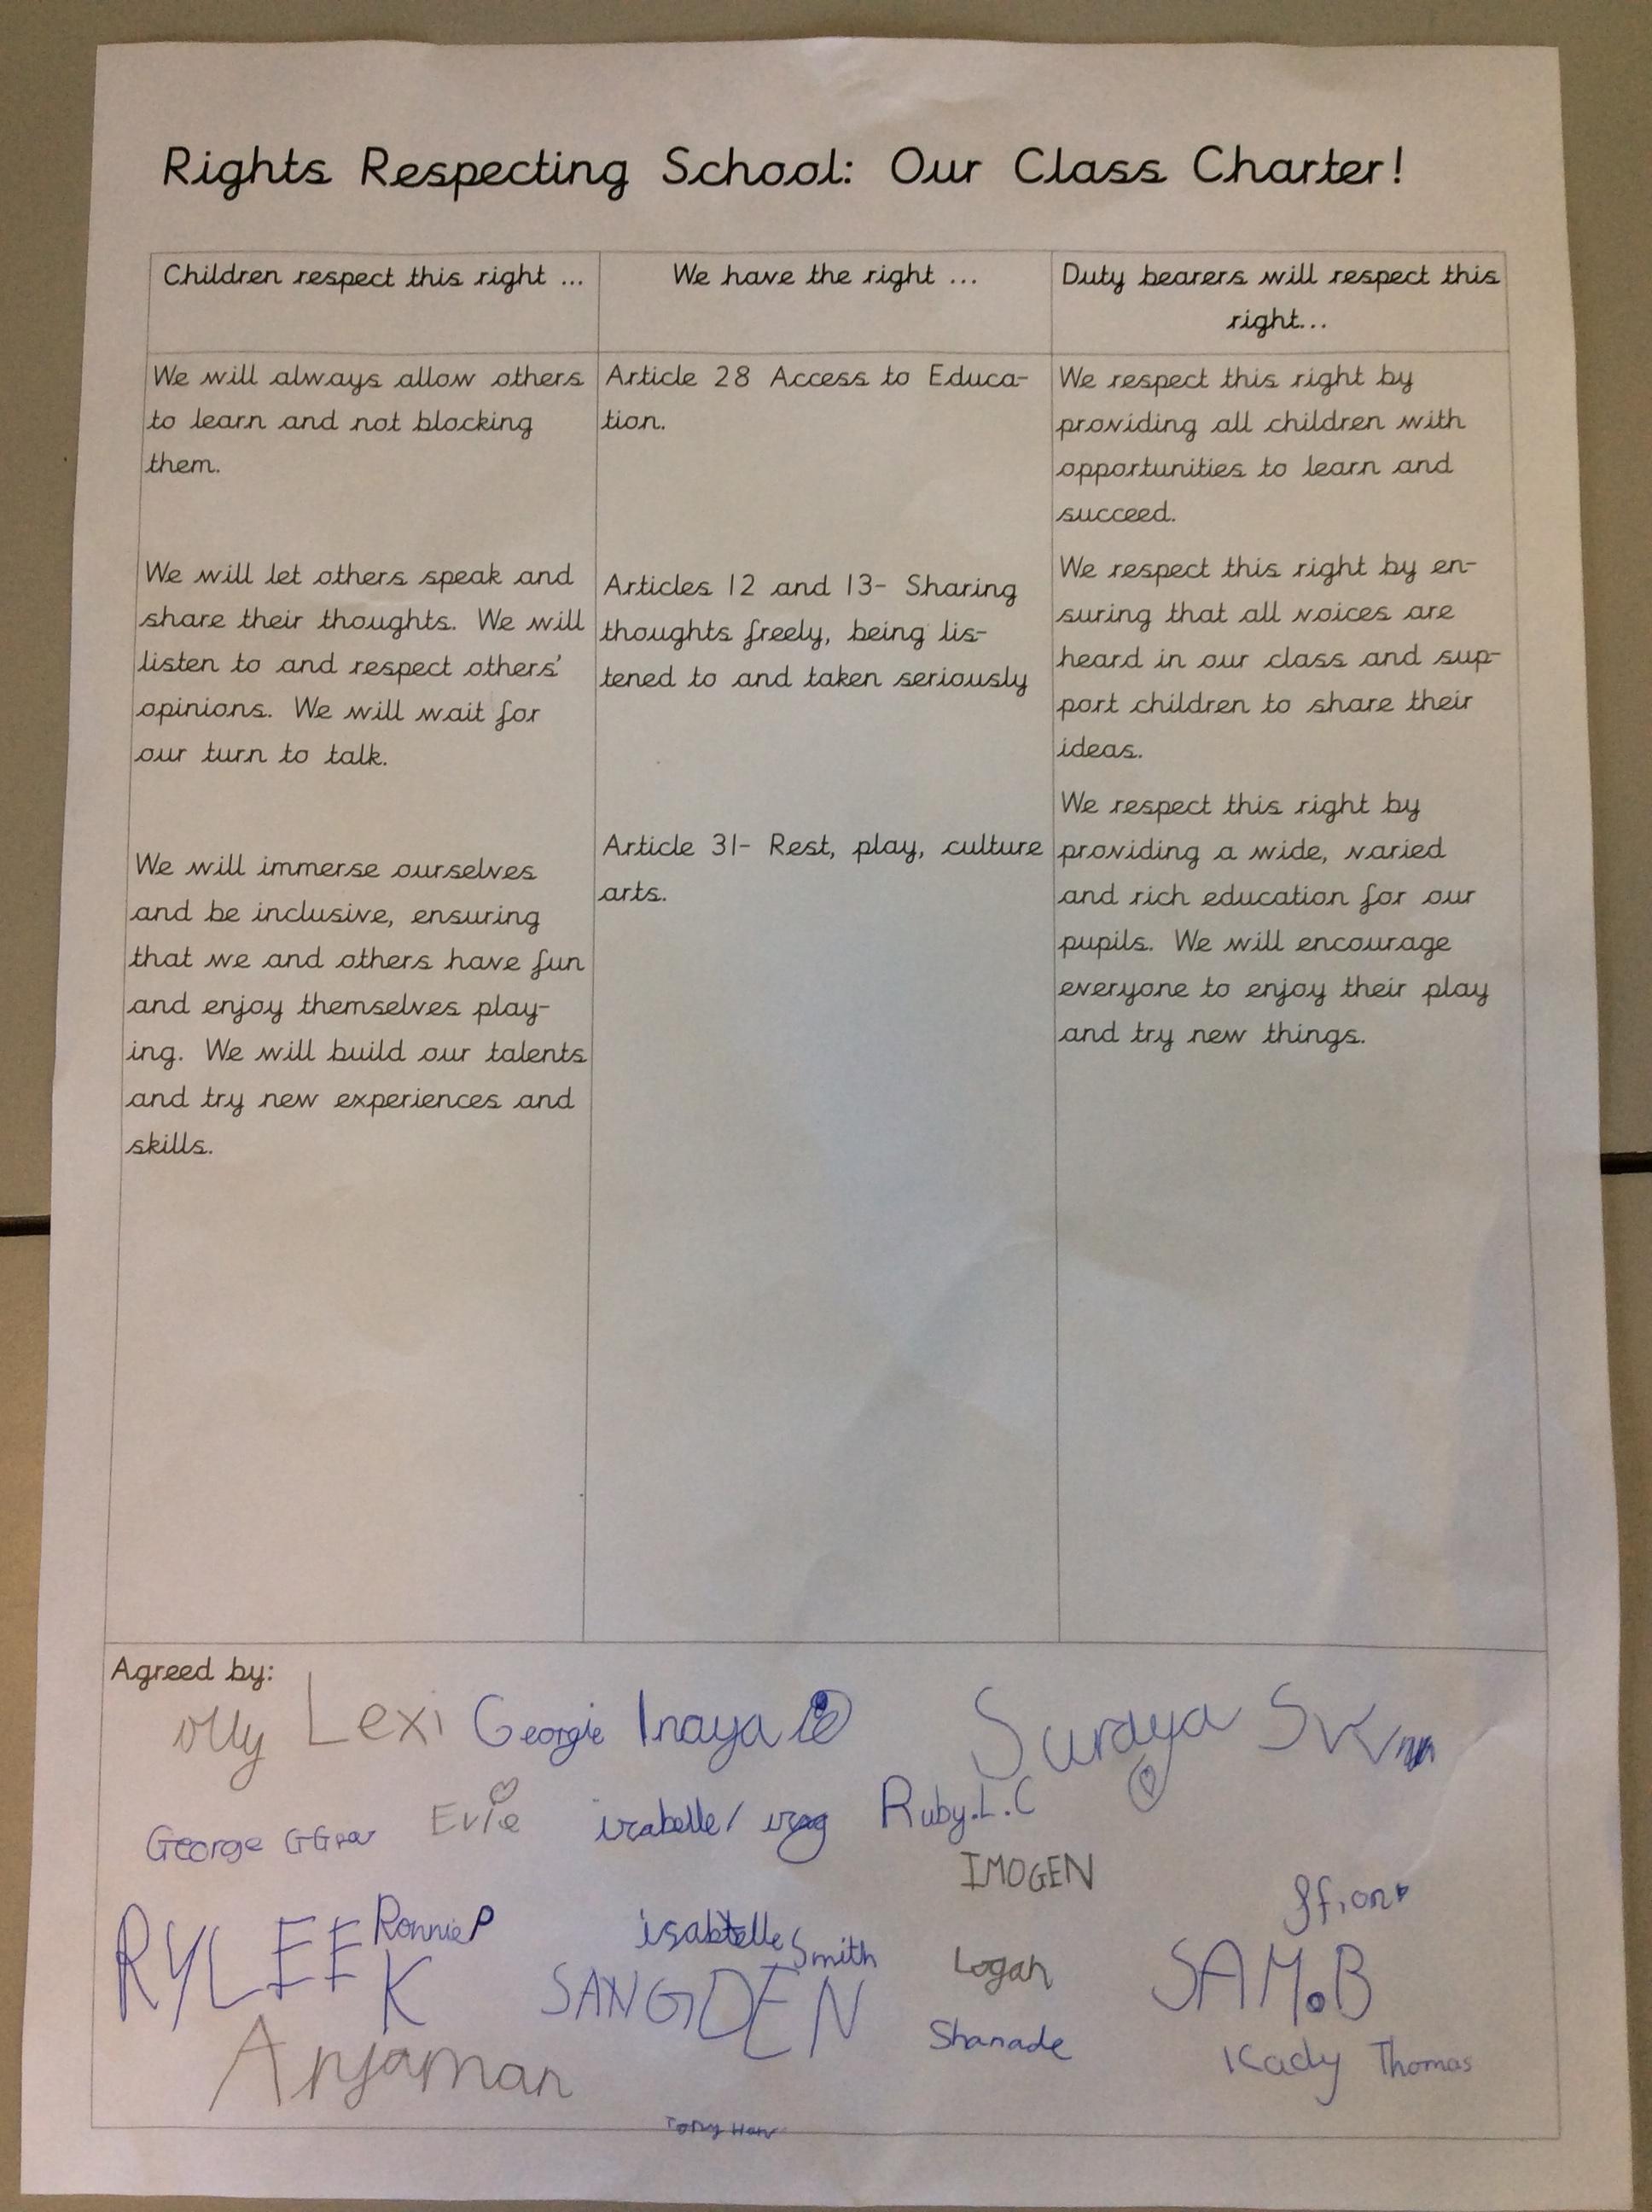 Rights Respecting School: Our Class Charter!
Children respect this right ...
We have the right ...
Duty bearers will respect this
right...
We will always allow others
to learn and not blocking
them.
Article 28 Access to Educa-
tion.
We respect this right by
providing all children with
opportunities to learn and
succeed.
We will let others speak and
share their thoughts. We will
listen to and respect others'
opinions. We will wait for
our turn to talk.
Articles 12 and 13- Sharing
thoughts freely, being lis-
tened to and taken seriously
We respect this right by en-
suring that all voices are
heard in our class and sup-
port children to share their
ideas.
We will immerse ourselves
and be inclusive, ensuring
that we and others have fun
and enjoy themselves play-
ing. We will build our talents
and try new experiences and
skills.
Article 31- Rest, play, culture
arts.
We respect this right by
providing a wide, varied
and rich education for our
pupils. We will encourage
everyone to enjoy their play
and try new things.
Agreed by:
Olly Lexi Georgie Inaya Suraya
George Evie isabelle Ruby.L.C
IMOGEN
Ffion
RYLEE K
Ronnie P
isabelle Smith
SANGDEN
Logan
SAM.B
Shanade
Anjaman
Kady Thomas
Tony